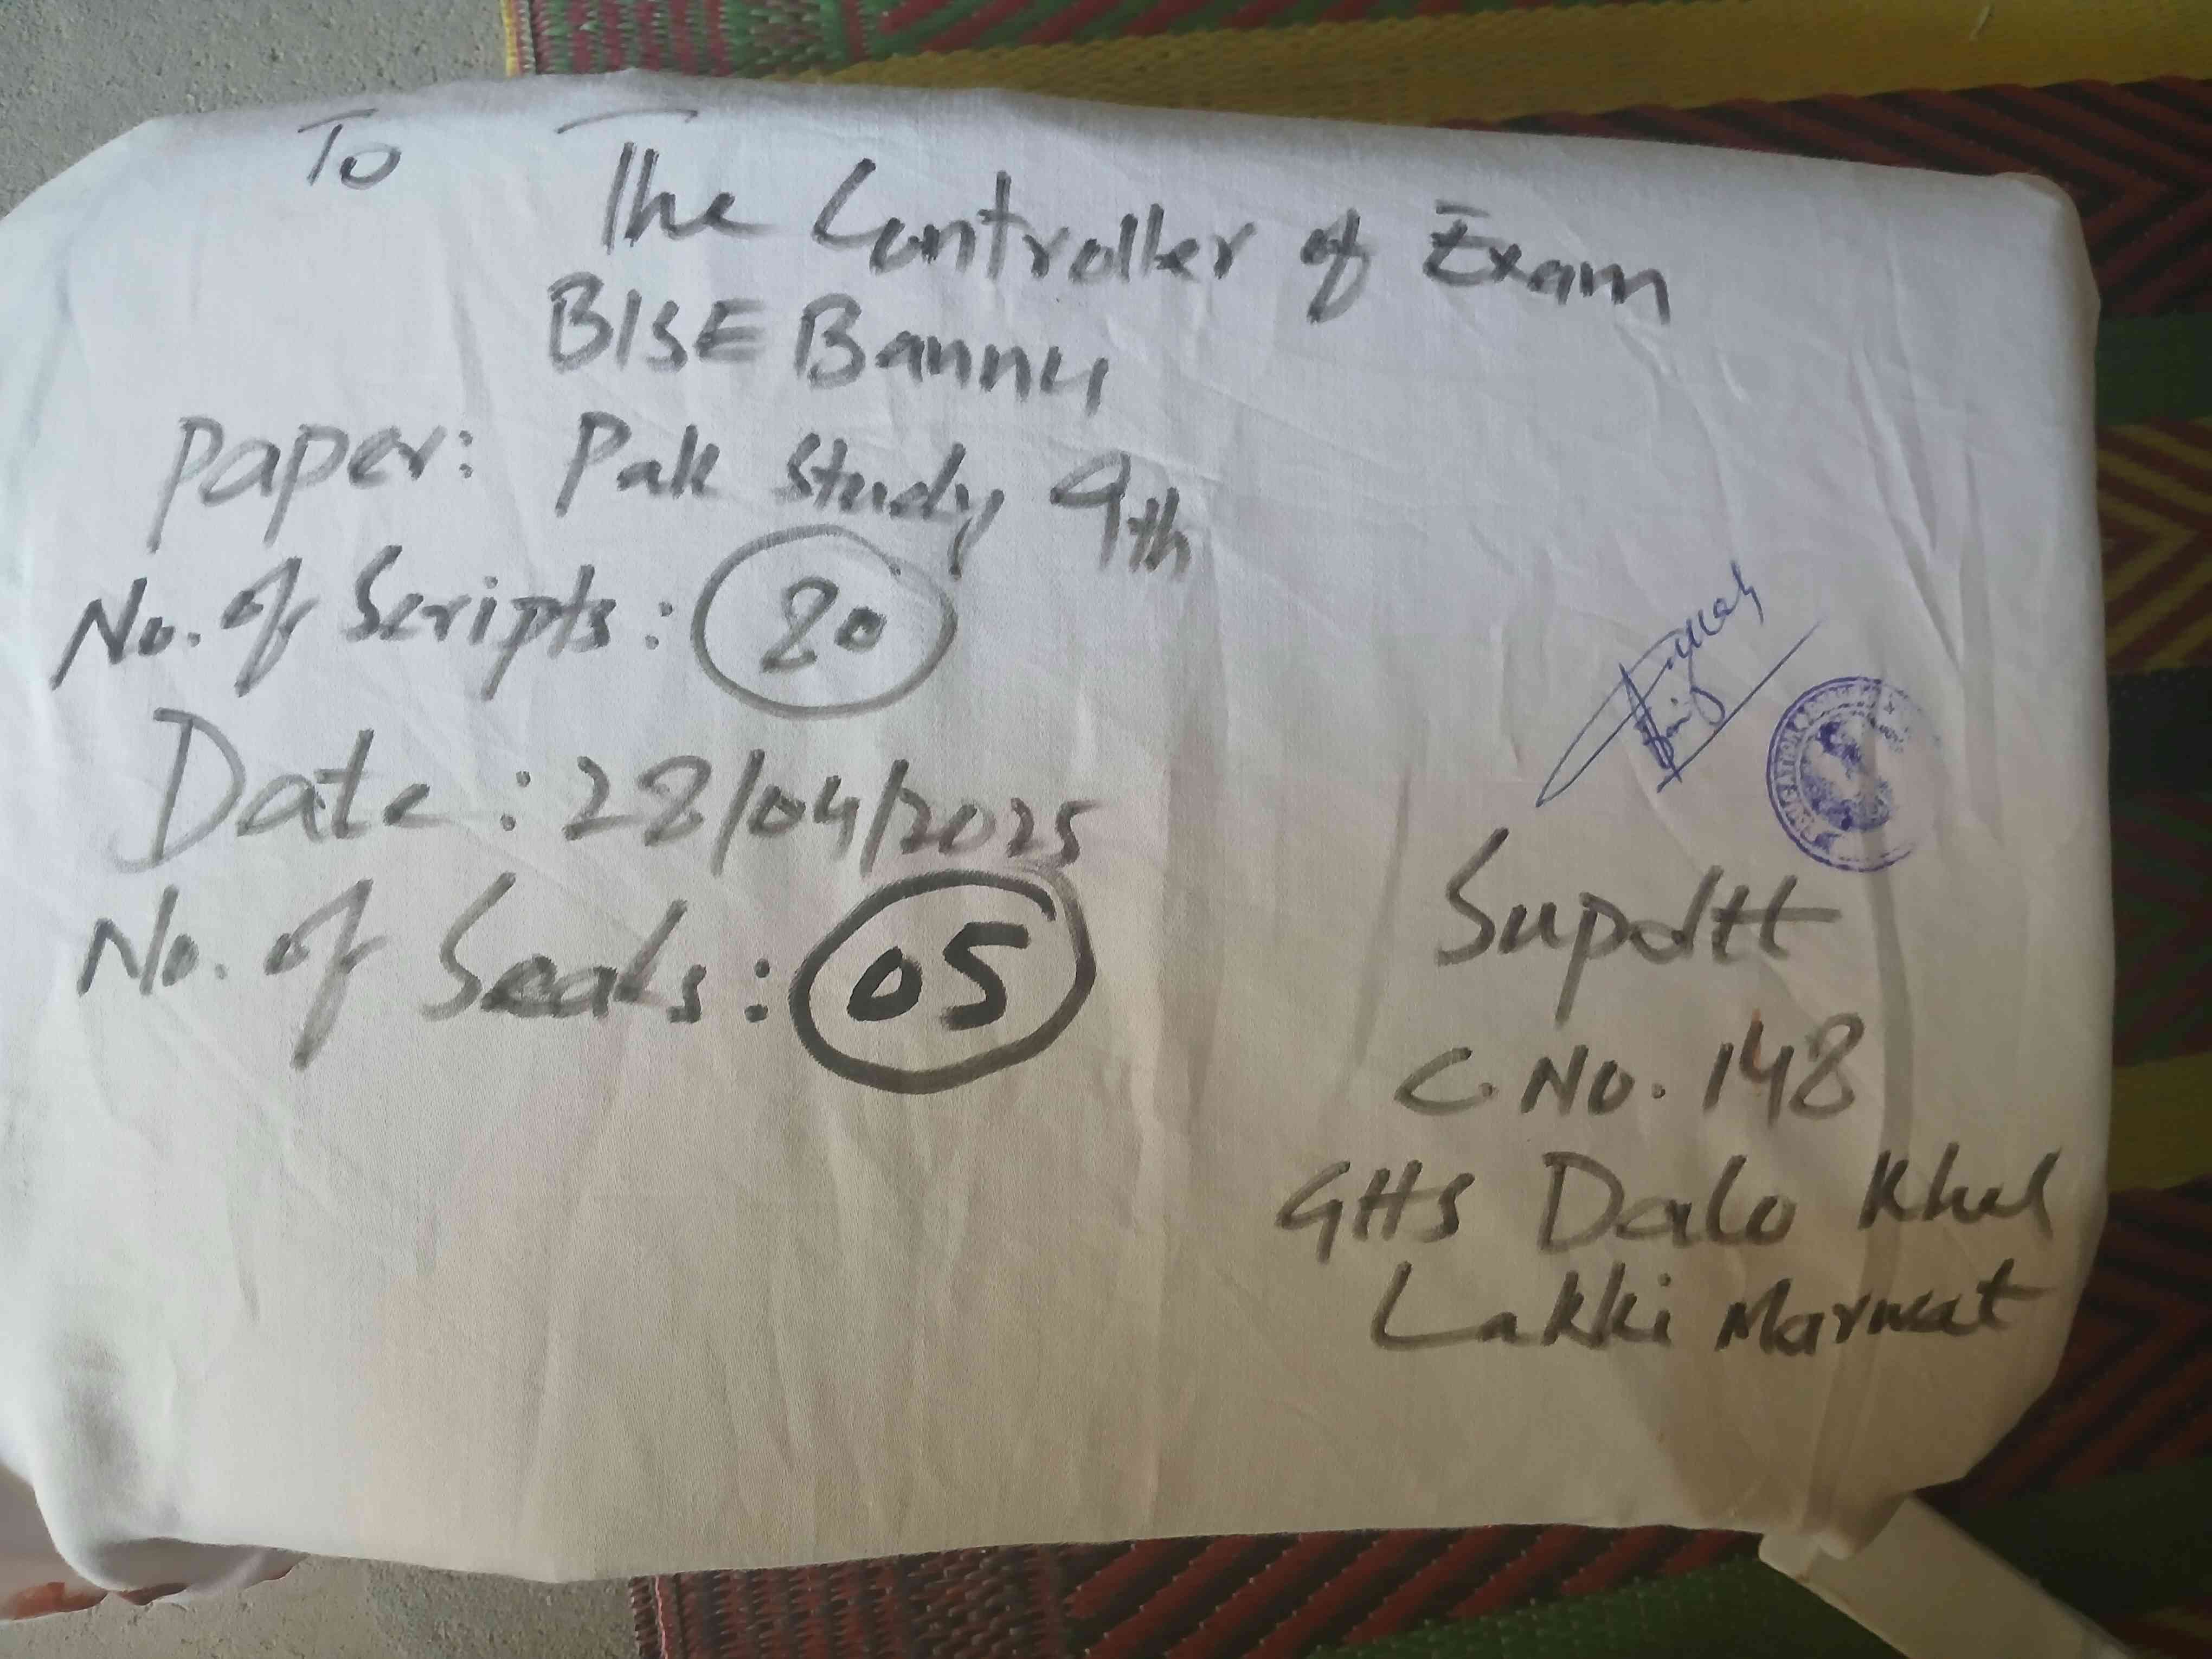 To
The Controller of Exam
BISE Bannu
Paper: Pak Study 9th
No. of Scripts: 80
Date: 28/04/2025
No. of Seals: 05
Supdtt
C. No. 148
GHS Dalo Khel
Lakki Marwat